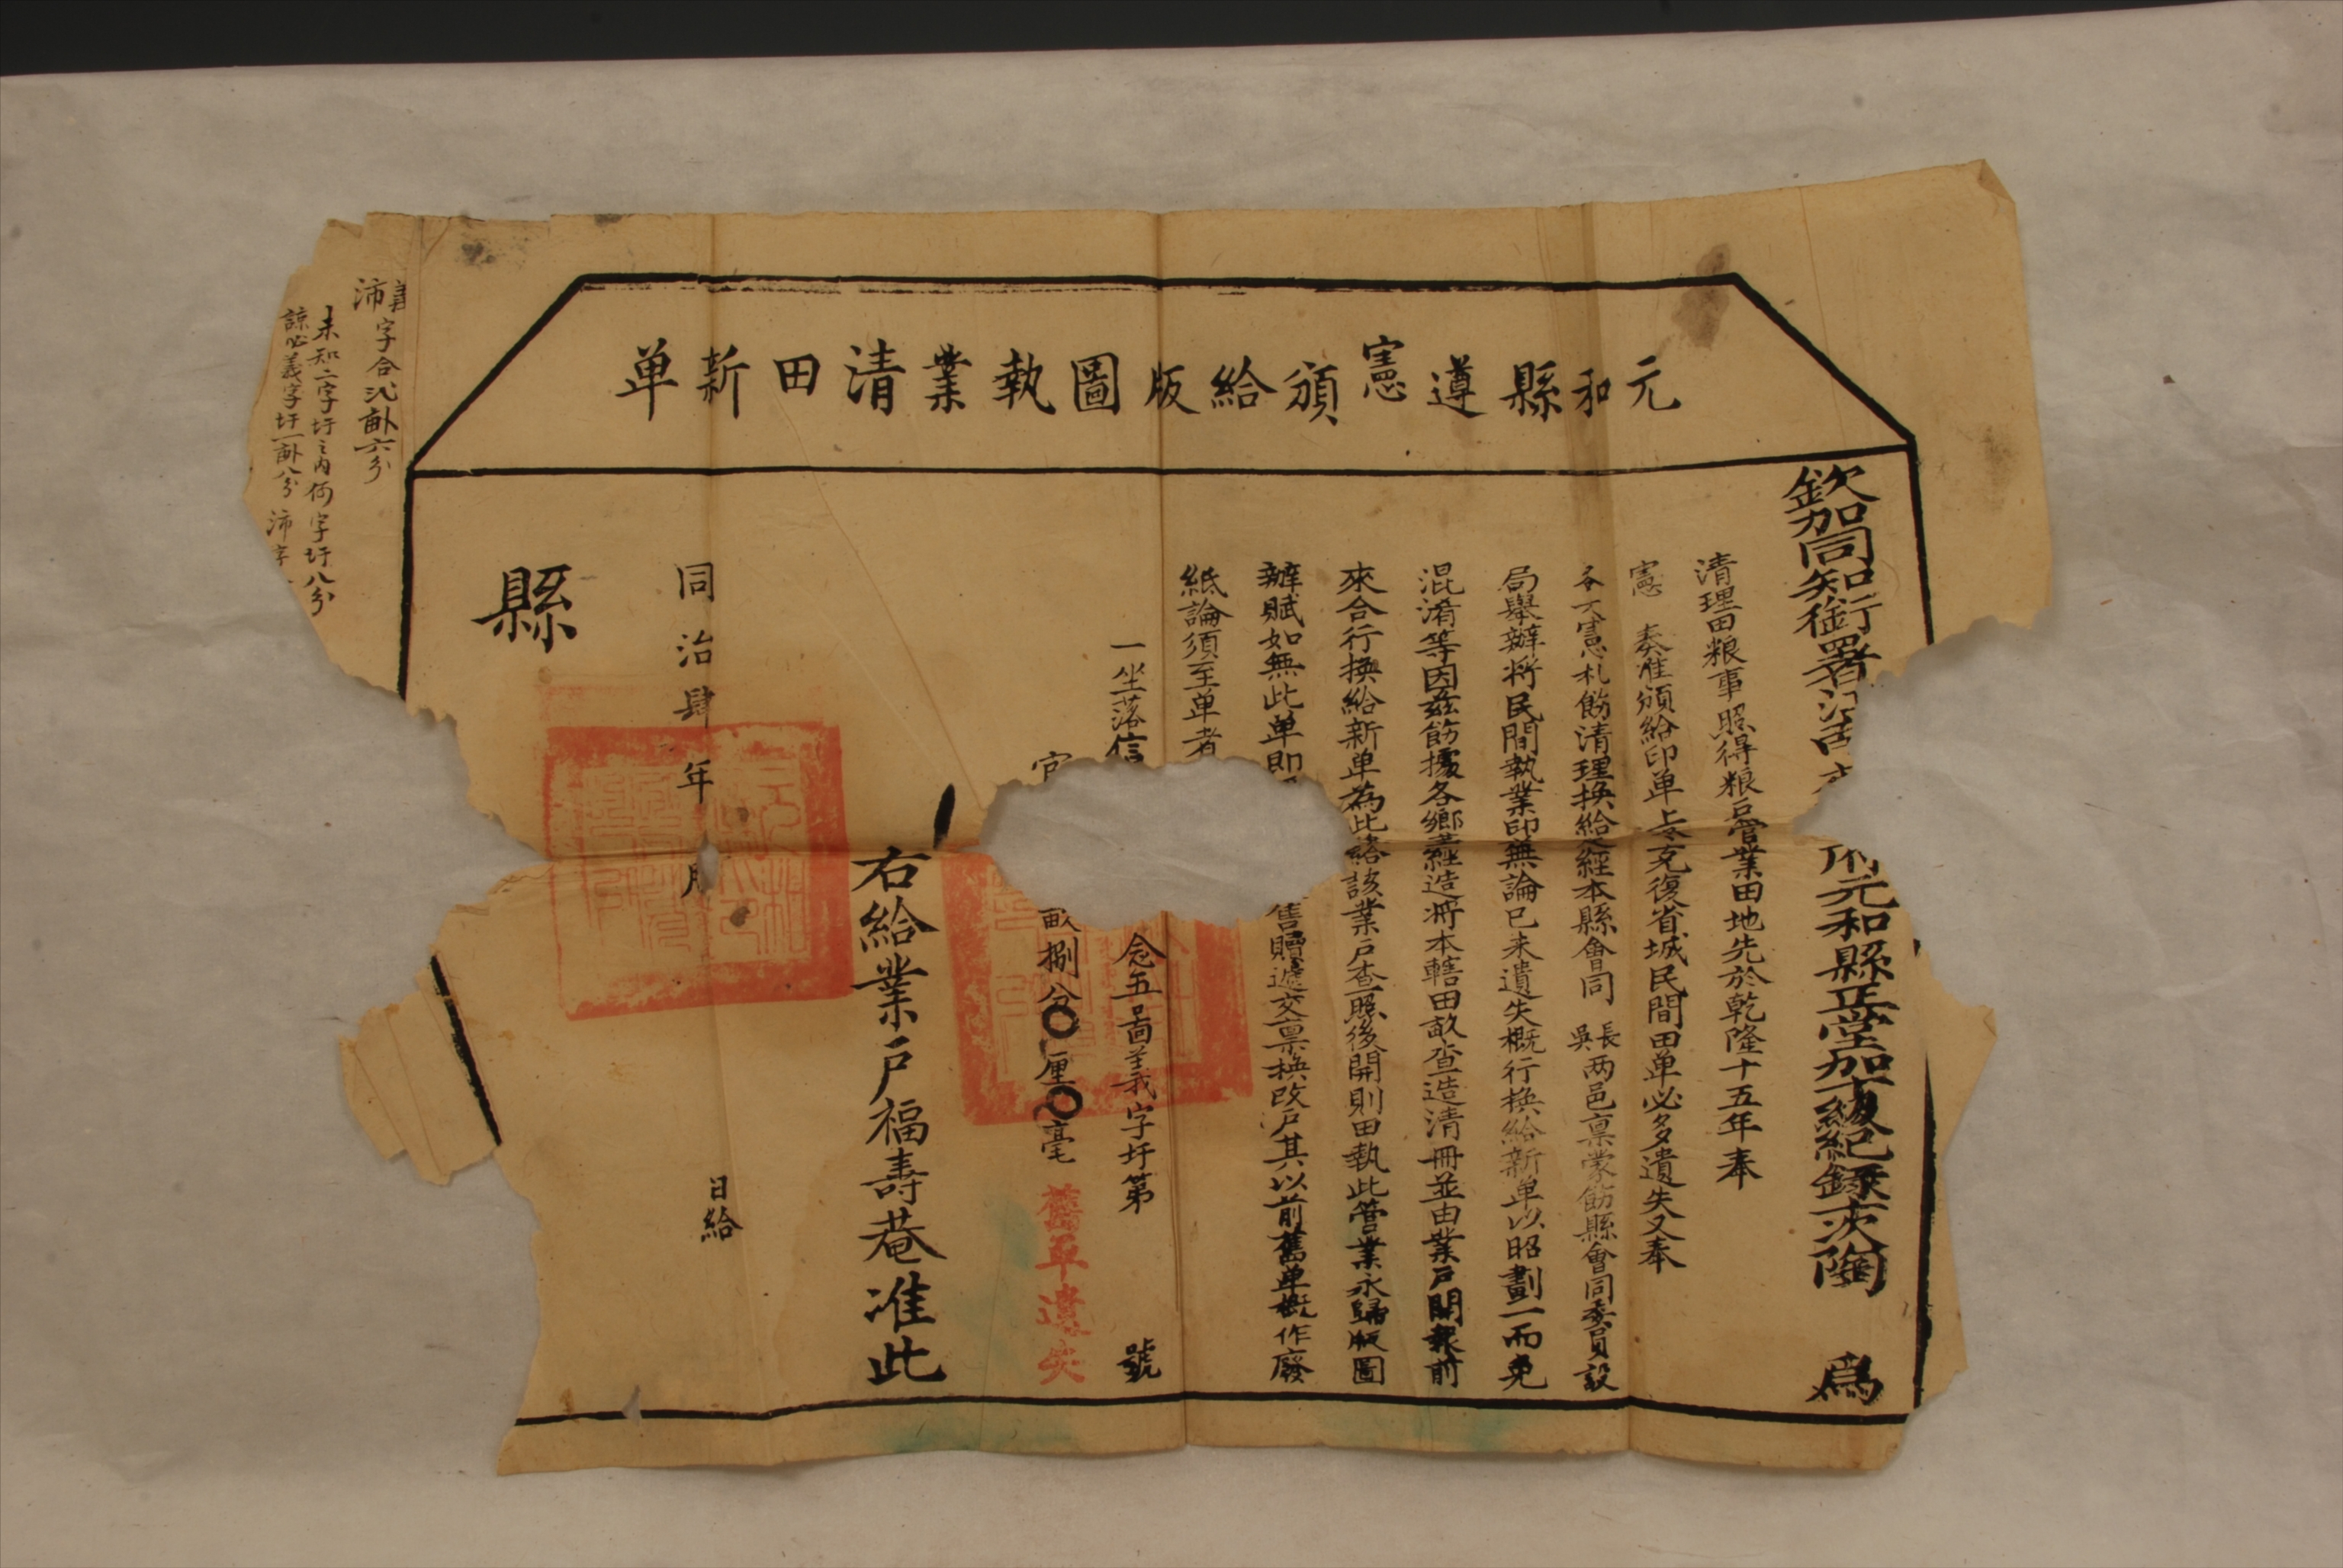 元和縣遵憲頒給版圖執業清田新单
欽加同知銜署江 府元和縣正堂加十級紀錄十次陶 為
清理田粮事照得粮户管業田地先於乾隆十五年奉
憲 奏准頒給印单上年克復省城民間田单必多遺失又奉
各大憲札飭清理換給經本縣會同 長吳 两邑稟蒙飭縣會同委員設
局舉辦將民間執業印無論已未遺失概行換給新单以昭劃一而免
混淆等因茲飭據各鄉 造將本轄田畝查造清冊並由業户開報前
來合行換給新单為此給該業户查照後開則田執此管業永歸版圖
辦賦如無此单即 售贖遞交稟換改户其以前舊单概作廢
紙論須至单者
一坐落信 念五啚義字圩第 號
官 畝捌分〇厘〇毫 舊单遺失
右給業户福壽菴准此
同治肆年 月 日給
縣
義
沛字合 畝六分
未知二字圩之内何字圩八分
諒必義字圩一畝八分 沛字